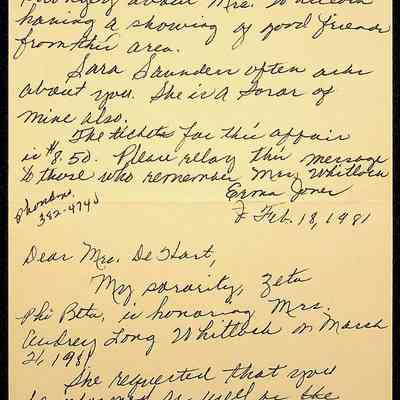 strongly about Mrs. Whitlock
having a showing of good friends
from this area.
Sara Saunders often asks
about you. She is a Soror of
mine also.
The tickets for this affair
is $8.50. Please relay this message
to those who remember Mrs Whitlock
Erma Jones
Phone no.
382-4740
Feb. 18, 1981
Dear Mrs. De Hart,
My sorority, Zeta
Phi Beta, is honoring Mrs.
Audrey Long Whitlock on March
21, 1981
She requested that you
as well as the